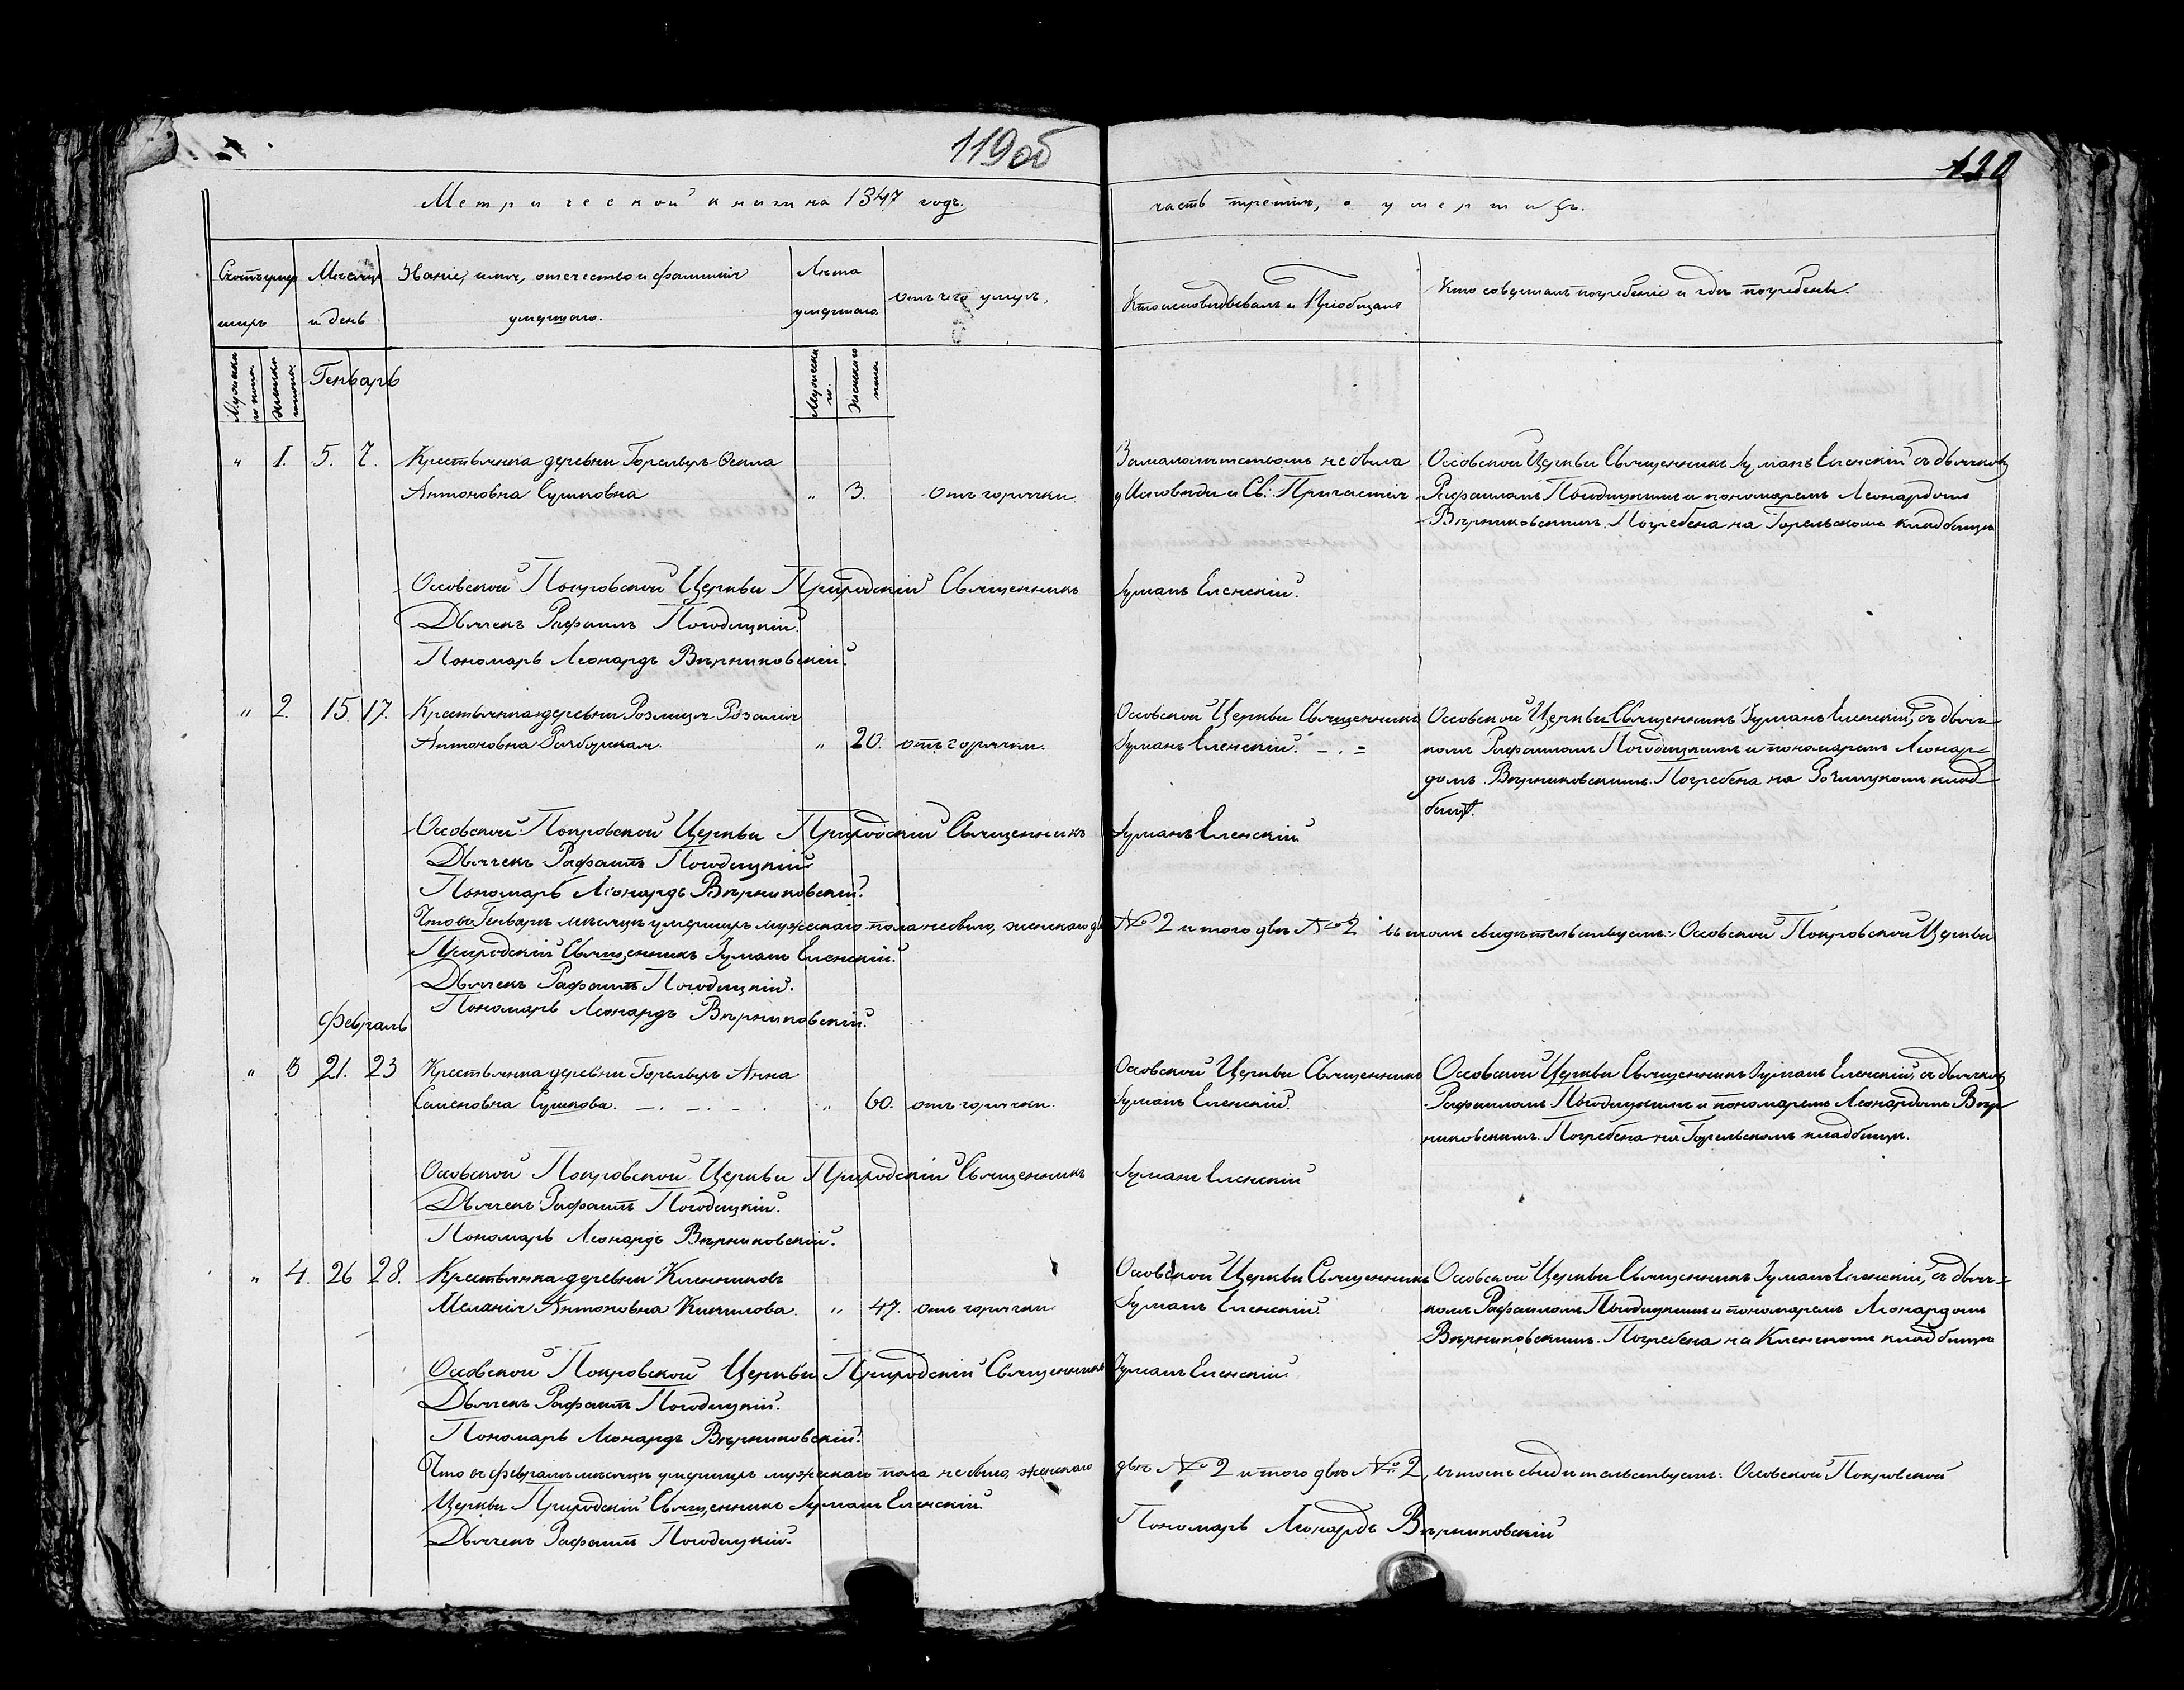 119 об
120
Метрической книги на 1847 годъ.
часть третія, о умершихъ.
Счетъ умер
шихъ
Мѣсяцъ
и день
Званіе, имя, отчество и фамилія
умершаго.
Лѣта
умершаго.
отъ чего умеръ,
Кто исповѣдывалъ и Пріобщалъ
Кто совершалъ погребеніе и гдѣ погребенъ.
Мужеска
го пола.
Женска
го пола.
Генварь
Мужеска
го.
Женскаго
пола.
" 1. 5. 7. Крестьянка деревни Горелыхъ Фекла
Антоновна Сушковна " 3. Отъ горячки.
За малолѣтствомъ не была
у Исповѣди и Св: Причастія
Оссовской Церкви Священникъ Іуліанъ Еленскій съ дьячкомъ
Рафаиломъ Погодицкимъ и пономаремъ Леонардомъ
Вѣрниковскимъ. Погребена на Горельскомъ кладбищѣ
Оссовской Покровской Церкви Приходскій Священникъ Іуліанъ Еленскій.
Дьячекъ Рафаилъ Погодицкій.
Пономарь Леонардъ Вѣрниковскій.
" 2. 15. 17. Крестьянка деревни Розалія
Антоновна " 20. отъ горячки.
Оссовской Церкви Священникъ
Іуліанъ Еленскій. - . =
Оссовской Церкви Священникъ Іуліанъ Еленскій, съ дьяч-
комъ Рафаиломъ Погодицкимъ и пономаремъ Леонар-
домъ Вѣрниковскимъ. Погребена на клад
бищѣ.
Оссовской Покровской Церкви Приходскій Священникъ Іуліанъ Еленскій
Дьячекъ Рафаилъ Погодицкій
Пономарь Леонардъ Вѣрниковскій.
Что въ Генварѣ мѣсяцѣ умершихъ мужескаго пола не было, женскаго двѣ № 2 итого двѣ № 2 въ томъ свидѣтельствуемъ: Оссовской Покровской Церкви
Приходскій Священникъ Іуліанъ Еленскій.
Дьячекъ Рафаилъ Погодицкій.
Пономарь Леонардъ Вѣрниковскій.
Февраль
" 3 21. 23 Крестьянка деревни Горелыхъ Анна
Семеновна Сушкова. - . - . - . " 60. отъ горячки.
Оссовской Церкви Священникъ
Іуліанъ Еленскій.
Оссовской Церкви Священникъ Іуліанъ Еленскій, съ дьячкомъ
Рафаиломъ Погодицкимъ и пономаремъ Леонардомъ Вѣр
никовскимъ. Погребена на Горельскомъ кладбищѣ.
Оссовской Покровской Церкви Приходскій Священникъ Іуліанъ Еленскій
Дьячекъ Рафаилъ Погодицкій.
Пономарь Леонардъ Вѣрниковскій.
" 4. 26 28. Крестьянка деревни Кленниковъ
Меланія Антоновна Кирилова. " 47. отъ горячки.
Оссовской Церкви Священникъ
Іуліанъ Еленскій.
Оссовской Церкви Священникъ Іуліанъ Еленскій, съ дьяч=
комъ Рафаиломъ Погодицкимъ и пономаремъ Леонардомъ
Вѣрниковскимъ. Погребена на Кленскомъ кладбищѣ
Оссовской Покровской Церкви Приходскій Священникъ Іуліанъ Еленскій.
Дьячекъ Рафаилъ Погодицкій.
Пономарь Леонардъ Вѣрниковскій.
Что въ февралѣ мѣсяцѣ умершихъ мужескаго пола не было, женскаго двѣ № 2 итого двѣ № 2, въ томъ свидѣтельствуемъ: Оссовской Покровской
Церкви Приходскій Священникъ Іуліанъ Еленскій.
Дьячекъ Рафаилъ Погодицкій.
Пономарь Леонардъ Вѣрниковскій